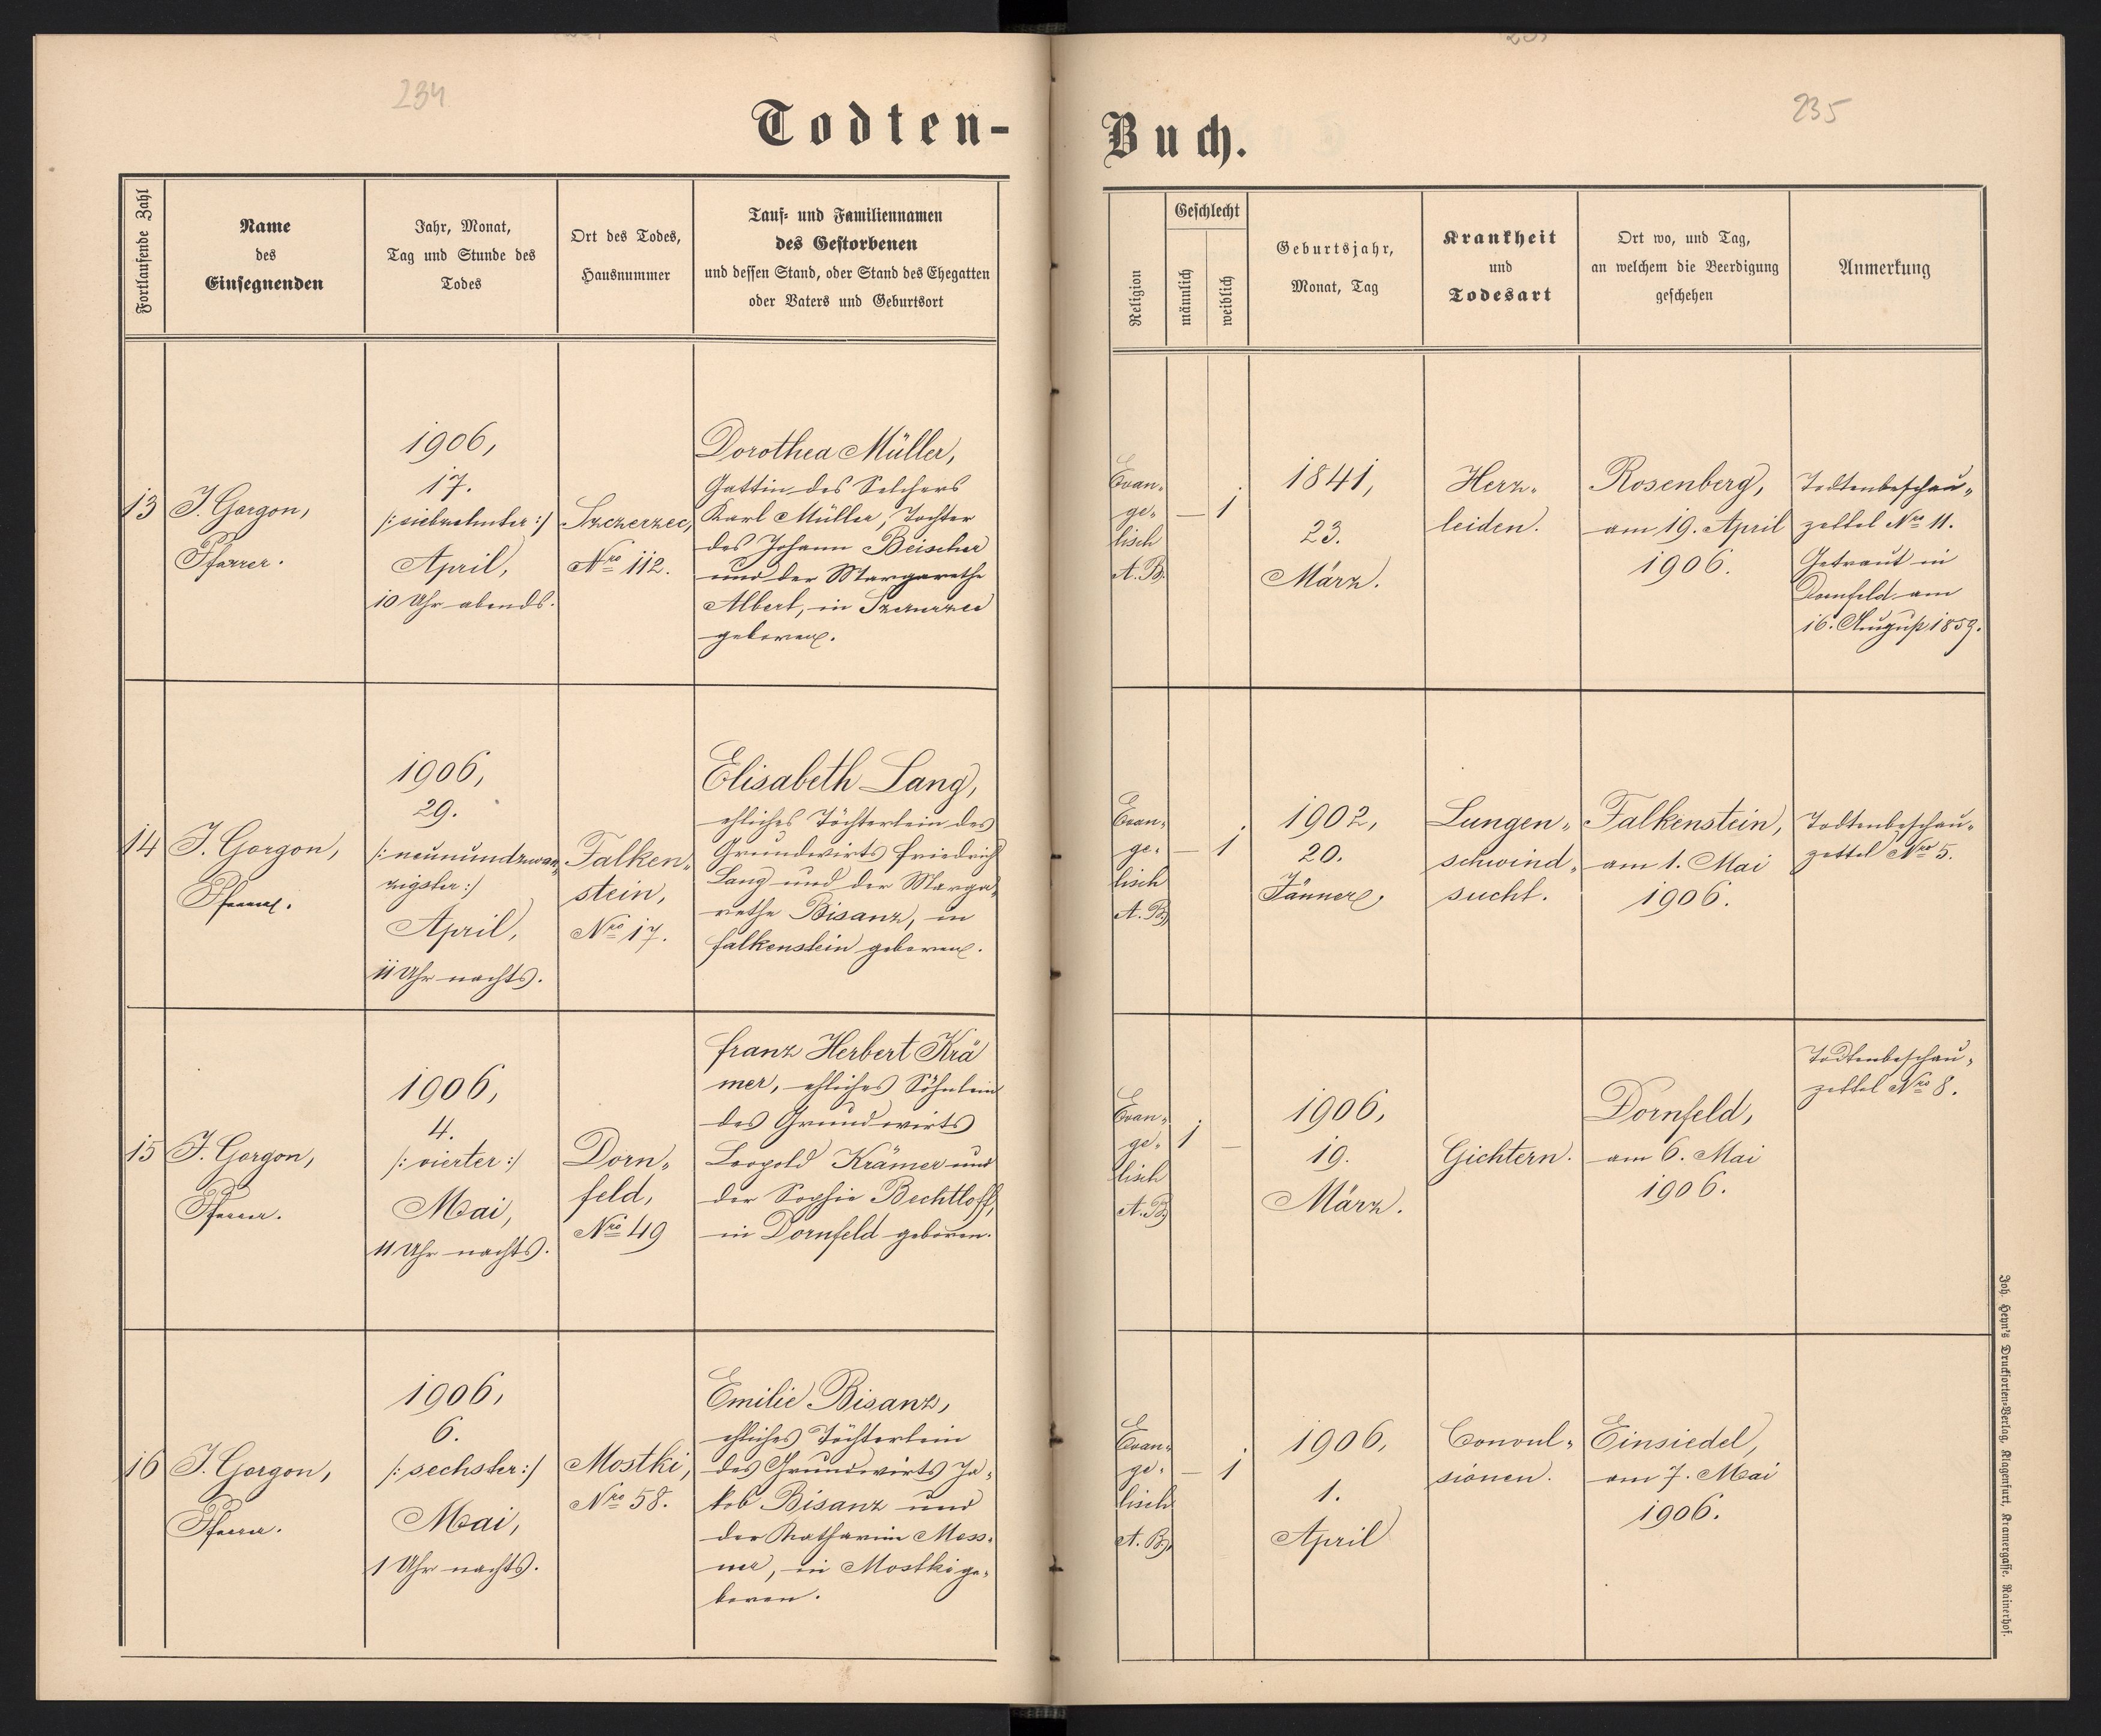 234
Todten-
Fortlaufende Zahl
Name
des
Einsegnenden
Jahr, Monat,
Tag und Stunde des
Todes
Ort des Todes,
Hausnummer
Tauf- und Familiennamen
des Gestorbenen
und dessen Stand, oder Stand des Ehegatten
oder Vaters und Geburtsort
13
J. Gorgon,
Pfarrer.
1906,
17.
/: siebzehnter :/
April,
10 Uhr abends.
Szczerzec,
Nro 112.
Dorothea Müller,
Gattin des Selchers
Karl Müller, Tochter
des Johann Beischer
und der Margarethe
Albert, in Szczerzec
geboren.
14
J. Gorgon,
Pfarrer.
1906,
29.
/: neunundzwan-
zigster :/
April,
11 Uhr nachts.
Falken-
stein,
Nro 17.
Elisabeth Lang,
ehliches Töchterlein des
Grundwirts Friedrich
Lang und der Marga-
rethe Bisanz, in
Falkenstein geboren.
15
J. Gorgon,
Pfarrer.
1906,
4.
/: vierter :/
Mai,
11 Uhr nachts.
Dorn-
feld,
Nro 49
Franz Herbert Krä
mer, ehliches Söhnlein
des Grundwirts
Leopold Krämer und
der Sophie Bechtloff,
in Dornfeld geboren.
16
J. Gorgon,
Pfarrer.
1906,
6.
/: sechster :/
Mai,
1 Uhr nachts.
Mostki,
Nro 58.
Emilie Bisanz,
ehliches Töchterlein
des Grundwirts Ja-
kob Bisanz und
der Katharina Mess-
ner, in Mostki ge-
boren.
235
Buch.
Religion
Geschlecht
männlich
weiblich
Geburtsjahr,
Monat, Tag
Krankheit
und
Todesart
Ort wo, und Tag,
an welchem die Beerdigung
geschehen
Anmerkung
Evan-
ge-
lisch
A. B.
— 1
1841,
23.
März.
Herz-
leiden.
Rosenberg,
am 19. April
1906.
Todtenbeschau-
zettel Nro 11.
Getraut in
Dornfeld am
16. August 1859.
Evan-
ge-
lisch
A. B.
— 1
1902,
20.
Jänner.
Lungen-
schwind-
sucht.
Falkenstein,
am 1. Mai
1906.
Todtenbeschau-
zettel Nro 5.
Evan-
ge-
lisch
A. B.
1 —
1906,
19.
März.
Gichtern.
Dornfeld,
am 6. Mai
1906.
Todtenbeschau-
zettel Nro 8.
Evan-
ge-
lisch
A. B.
— 1
1906,
1.
April
Convul-
sionen.
Einsiedel,
am 7. Mai
1906.
Joh. Heyn's Drucksorten-Verlag, Klagenfurt, Kramergasse. Rainerhof.